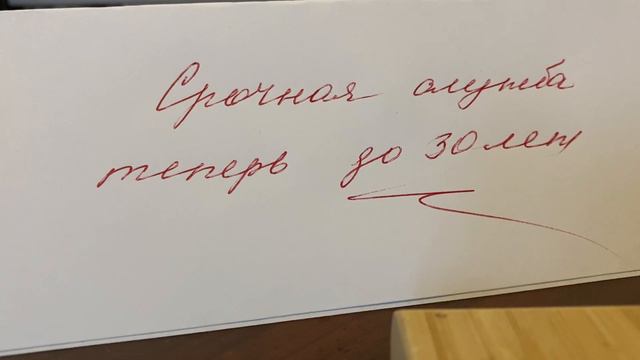 Срочная служба
теперь до 30 лет